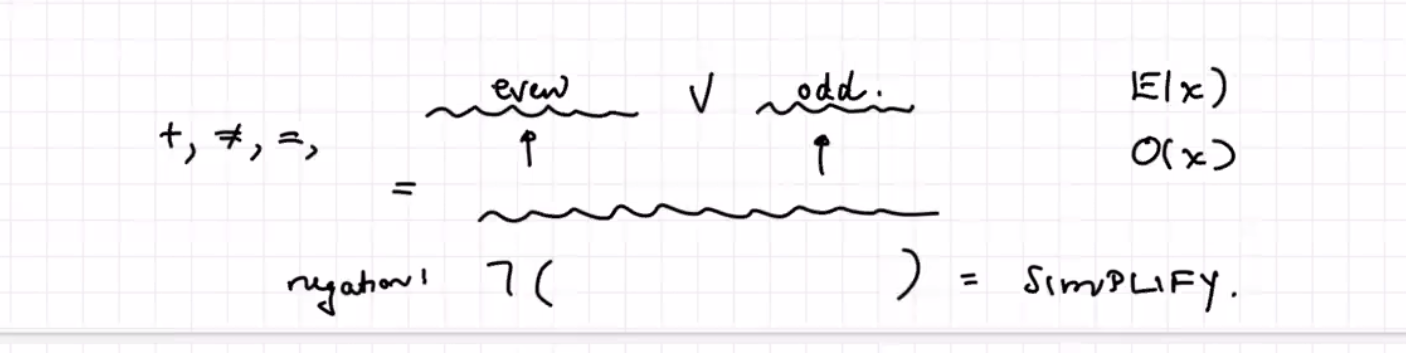 even ∨ odd. E(x)
+, ≠, =, ↑ ↑ O(x)
=
negation: ¬( ) = SIMPLIFY.